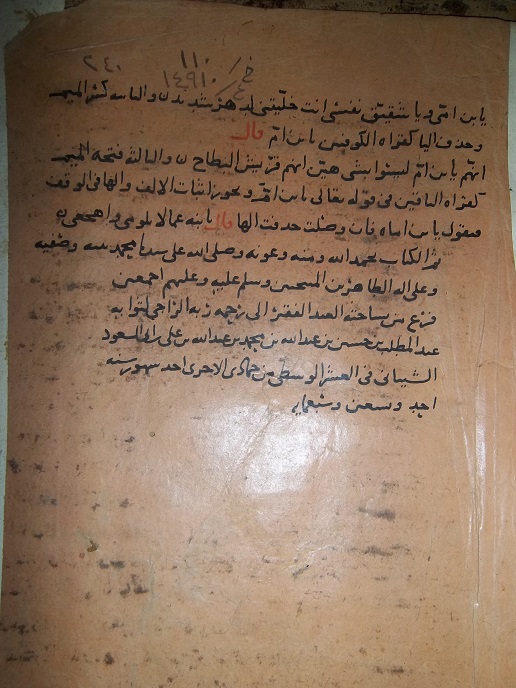 ١١٠ خ/٤
١٤٩١٠ ٢٤٠
يا بن امى ويا شقيق نفسى انت خليتنى لدهر شديد ن والثانيه كسر الميم
وحذف اليا كقراه الكوفيين يا بن امّ قال
انهم يا بن امّ ليسوا بشى هين انهم قريش البطاح ن والثالثه فتحه الميم
كقراه الباقين فى قوله تعالى يا بن امّ ويجوز اثبات الالف والها فى الوقف
فيقول يا بن اماه فان وصلت حذفت الها قال يا بنه عما لا تلومى واهجعى
تم الكتاب بحمد الله ومنه وعونه وصلى الله على سيدنا محمد نبيه وصفيه
وعلى اله الطاهرين المنتجبين وسلم عليه وعليهم اجمعين
فرغ من نساخته العبد الفقير الى رحمه ربه الراجى لثوابه
عبد المطلب بن حسين بن عبد الله بن محمد بن عبد الله بن على بن ابى السعود
الشيبانى فى العشر الوسطى من جمادى الاخرى احد شهور سنه
احد وسبعين وسبعمايه